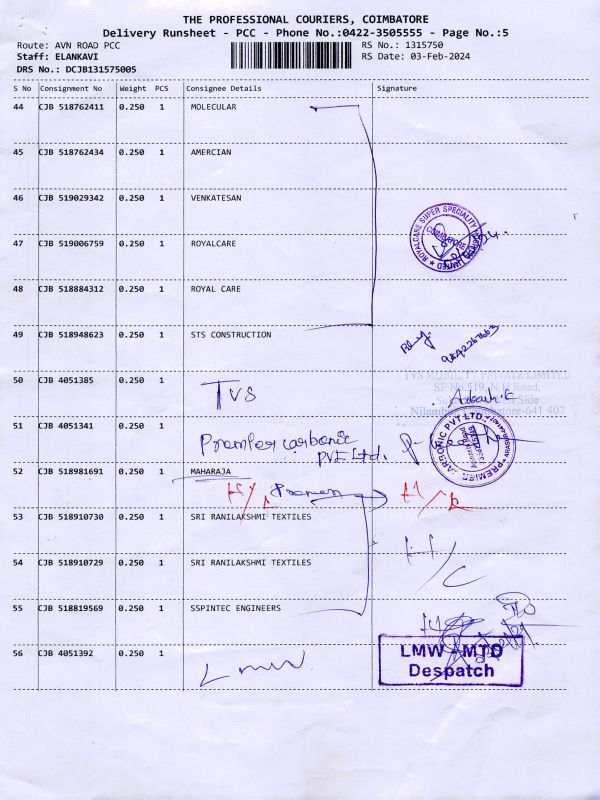 THE PROFESSIONAL COURIERS, COIMBATORE
Delivery Runsheet - PCC - Phone No.:0422-3505555 - Page No.:5
Route: AVN ROAD PCC
RS No.: 1315750
Staff: ELANKAVI
RS Date: 03-Feb-2024
DRS No.: DCJB131575005
S No Consignment No Weight PCS Consignee Details Signature
44 CJB 518762411 0.250 1 MOLECULAR
45 CJB 518762434 0.250 1 AMERCIAN
46 CJB 519029342 0.250 1 VENKATESAN
ROYALCARE SUPER SPECIALITY LIMITED
COIMBATORE
47 CJB 519006759 0.250 1 ROYALCARE
48 CJB 518884312 0.250 1 ROYAL CARE
49 CJB 518948623 0.250 1 STS CONSTRUCTION
TVS MOBILITY PRIVATE LIMITED
SF No.519, N H Road,
50 CJB 4051385 0.250 1 TVS
Side
641 407
51 CJB 4051341 0.250 1 Premier carbonic
PVE Ltd.
PREMIER CARBONIC PVT LTD.
52 CJB 518981691 0.250 1 MAHARAJA
H/L H/L
53 CJB 518910730 0.250 1 SRI RANILAKSHMI TEXTILES
H/C
54 CJB 518910729 0.250 1 SRI RANILAKSHMI TEXTILES
55 CJB 518819569 0.250 1 SSPINTEC ENGINEERS
56 CJB 4051392 0.250 1 LMW
LMW - MTD
Despatch